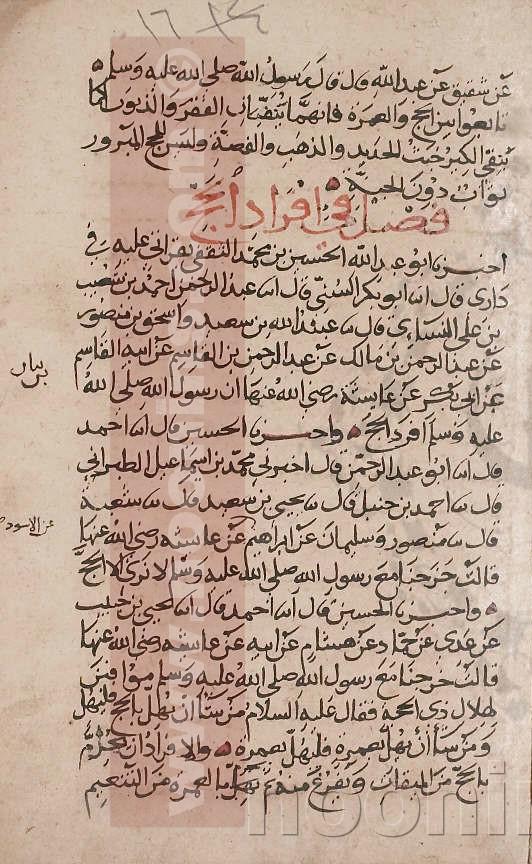 عن شقيق عن عبد الله قال قال رسول الله صلى الله عليه وسلم
تابعوا بين الحج والعمرة فانهما ينفيان الفقر والذنوب كما
ينفي الكير خبث الحديد والذهب والفضة وليس للحج المبرور
ثواب دون الجنة
فصل في افراد الحج
اخبرنا ابو عبد الله الحسين بن محمد الثقفي بقراتي عليه في
داري قال انا ابو بكر السني قال انا عبد الرحمن احمد بن شعيب
بن علي النسائي قال نا عبيد الله بن سعيد واسحق بن منصور
عن عبد الرحمن بن مالك عن عبد الرحمن بن القاسم عن ابيه القاسم
عن ابي بكر عن عائشة رضي الله عنها ان رسول الله صلى الله
عليه وسلم افرد الحج واخبرنا الحسين قال انا احمد
قال انا ابو عبد الرحمن قال اخبرني محمد بن اسماعيل الطبراني
قال نا احمد بن حنبل قال نا يحيى بن سعيد قال نا شعبة
قال نا منصور وسليمان عن ابراهيم عن عائشة رضي الله عنها
قالت خرجنا مع رسول الله صلى الله عليه وسلم لا نرى الا الحج
واخبرنا الحسين قال انا احمد قال انا يحيى بن حبيب
عن عدي عن حماد عن هشام عن ابيه عن عائشة رضي الله عنها
قالت خرجنا مع رسول الله صلى الله عليه وسلم موافين
هلال ذي الحجة فقال عليه السلام من شأ ان يهل بالحج فليهل
ومن شأ أن يهل بعمرة فليهل بعمرة والافراد ان يحرم
بالحج من الميقات ويفرغ منه ثم يهل بالعمرة من التنعيم
عن الاسود